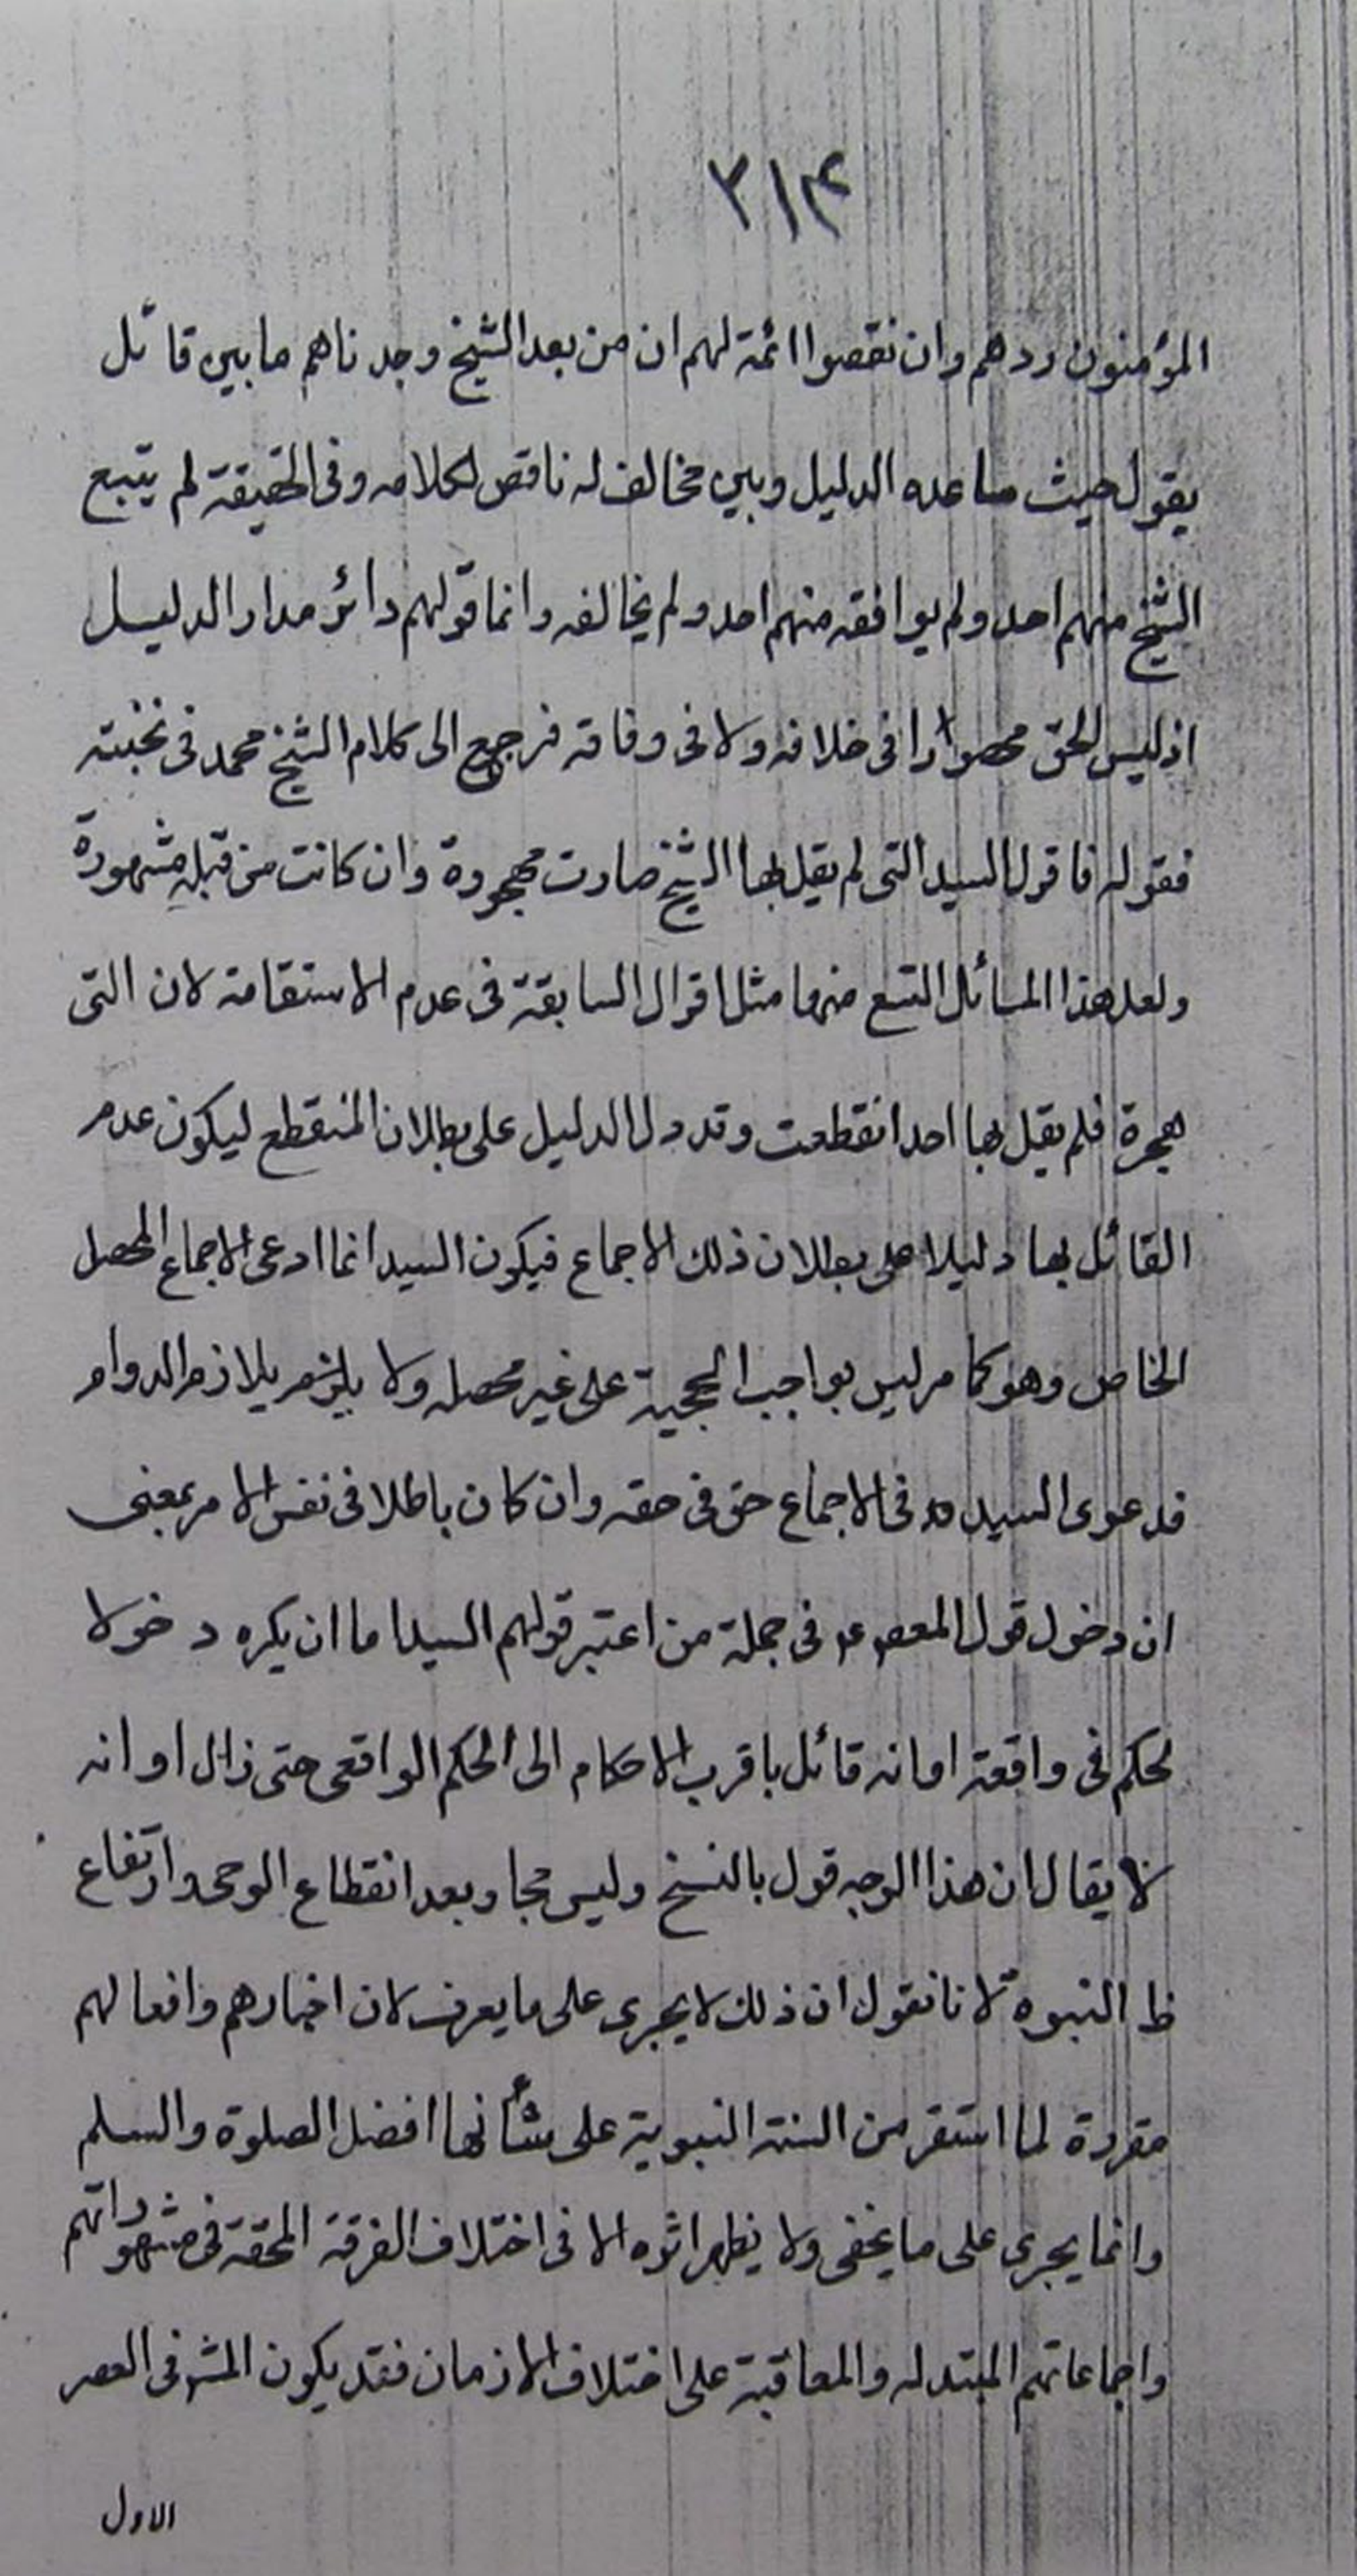 ٣١٤
المؤمنون ردهم وان نقصوا ائمة لهم ان من بعد الشيخ وجدناهم ما بين قائل
يقول حيث ساعده الدليل وبين مخالف له ناقص لكلامه وفى الحقيقة لم يتبع
الشيخ منهم احد ولم يوافقه منهم احد ولم يخالفه وانما قولهم دائر مدار الدليل
اذ ليس الحق محصورا فى خلافه ولا فى وفاقه فرجع الى كلام الشيخ محمد فى نخبته
فقوله فاقول السيد التى لم يقل بها الشيخ صارت مهجورة وان كانت من قبله مشهورة
ولعل هذا المسائل التسع منها مثل اقوال السابقة فى عدم الاستقامة لان التى
هجرة فلم يقل بها احد انقطعت وقد دل الدليل على بطلان المنقطع ليكون عدم
القائل بها دليلا على بطلان ذلك الاجماع فيكون السيد انما ادعى الاجماع المحصل
الخاص وهو كما مر ليس بواجب الحجية على غير محصله ولا يلزم يلازم الدوام
فدعوى السيد ره فى الاجماع حق فى حقه وان كان باطلا فى نفس الامر بمعنى
ان دخول قول المعصوم فى جملة من اعتبر قولهم السيد اما ان يكره دخولا
لحكم فى واقعة او انه قائل باقرب الاحكام الى الحكم الواقعى حتى زال اوانه
لا يقال ان هذا الوجه قول بالنسخ وليس مجاو بعد انقطاع الوحى وارتفاع
ظ النبوة لانا نقول ان ذلك لا يجرى على ما يعرف لان اخبارهم وافعالهم
مقررة لما استقر من السنة النبوية على مشأنها افضل الصلوة والسلم
وانما يجرى على ما يخفى ولا يظهر اثره الا فى اختلاف الفرقة المحقة فى مشهوراتهم
واجماعاتهم المبتدله والمعاقبة على اختلاف الازمان فقد يكون المش فى العصر
الاول